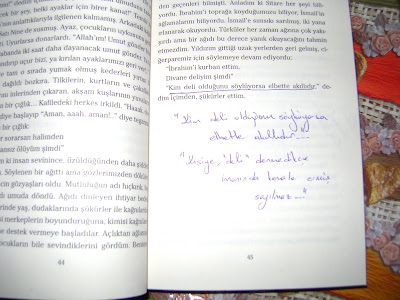 an anlattıklarıyla ilgilenen kalmamış. Arkamızdan
san Nine de susmuş. Ayaz, çocukların uykusunu
di. Uyurlarsa donarlardı. "Allah'ım! Umut gönder
abahla iki saat daha dayanacak umut gönder
e taşı o sırada yumak olmuş kederleri yırtıp
dağıldı bozkıra. Tilkilerin, kurtların ve çakalların
n inlerinden çıkaran, akşam kuşlarının yuvalarını
bir çığlık... Kafiledeki herkes irkildi. "Haaak
e başlayıp "Aman, aaah, aman!..." diye
bir çığlık:
r sorarsan halimden
ansız ölüyüm şimdi"
n ki insan sevinince, üzüldüğünden daha
Söylenen bir ağıttı ama gözlerimizden döküle
ncin gözyaşları oldu. Mutluluğun adı hıçkırık
dı umuda döndü. Ağıdı dinleyen ihtiyar
erinde yaş, dudaklarında şükürler ile kağnılar
i merkeplerin boyunduruğuna, kimisi kağnılar
e destek vermeye başladılar. Açlıktan ağla
ocukların bile sevindiklerini gördüm. Benim
44
den geçenleri bilmişti. Anladım ki Sitare her şeyi bili-
yordu. İbrahim'i toprağa koyduğumuzu biliyor, İsmail'in
ağlamasını biliyordu. İsmail'e sımsıkı sarılmış, iki yana
elanarak okuyordu. Türküler her zaman ağrısı çok yakı-
ardı ama bir ağıdı bu derece yanık okuyacağını tahmin
etmezdim. Yıldızım gittiği uzak yerlerden geri gelmiş, ci-
ğerparemiz için söylemeye devam ediyordu:
"İbrahim'i kurban ettim
Divane deliyim şimdi"
"Kim deli olduğunu söylüyorsa elbette akıllıdır." de-
dim içimden, şükürler ettim.
"Kim deli olduğunu söylüyorsa
elbette akıllıdır....
"Kişiye, "deli" denmedikçe
imanında kemale ermiş
sayılmaz..."
45